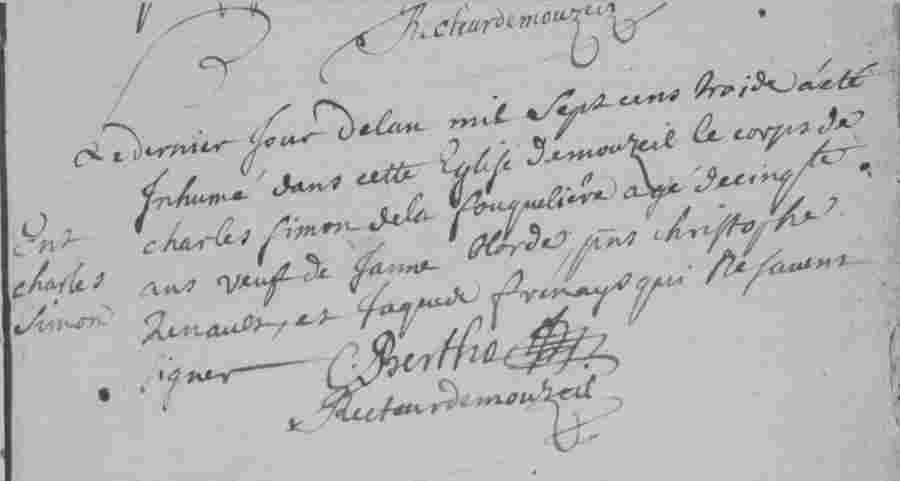 Recteur de mouzeil
Le dernier jour de lan mil Sept cens troide a été
Inhumé dans cette Eglise demouzeil le corps de
Ent charles Simon
charles Simon dela fouqueliere agé de cinq te
ans veuf de Janne blorde, pns christophe
Renault, et Jaque frenays qui Ne savent
signer
C Bertho
Recteur demouzeil